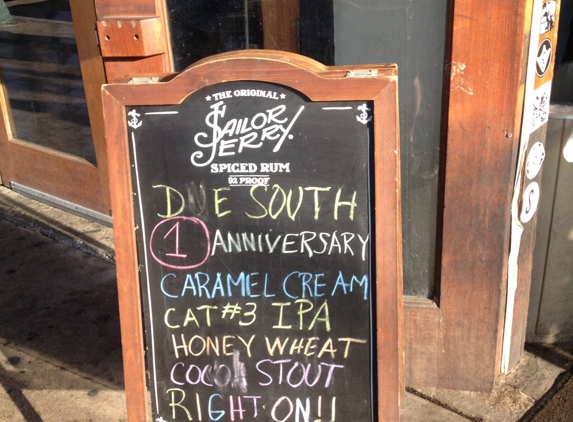 THE ORIGINAL
SAILOR
JERRY.
SPICED RUM
92 PROOF
DUE SOUTH
1 ANNIVERSARY
CARAMEL CREAM
CAT #3 IPA
HONEY WHEAT
COCOA STOUT
RIGHT ON!!